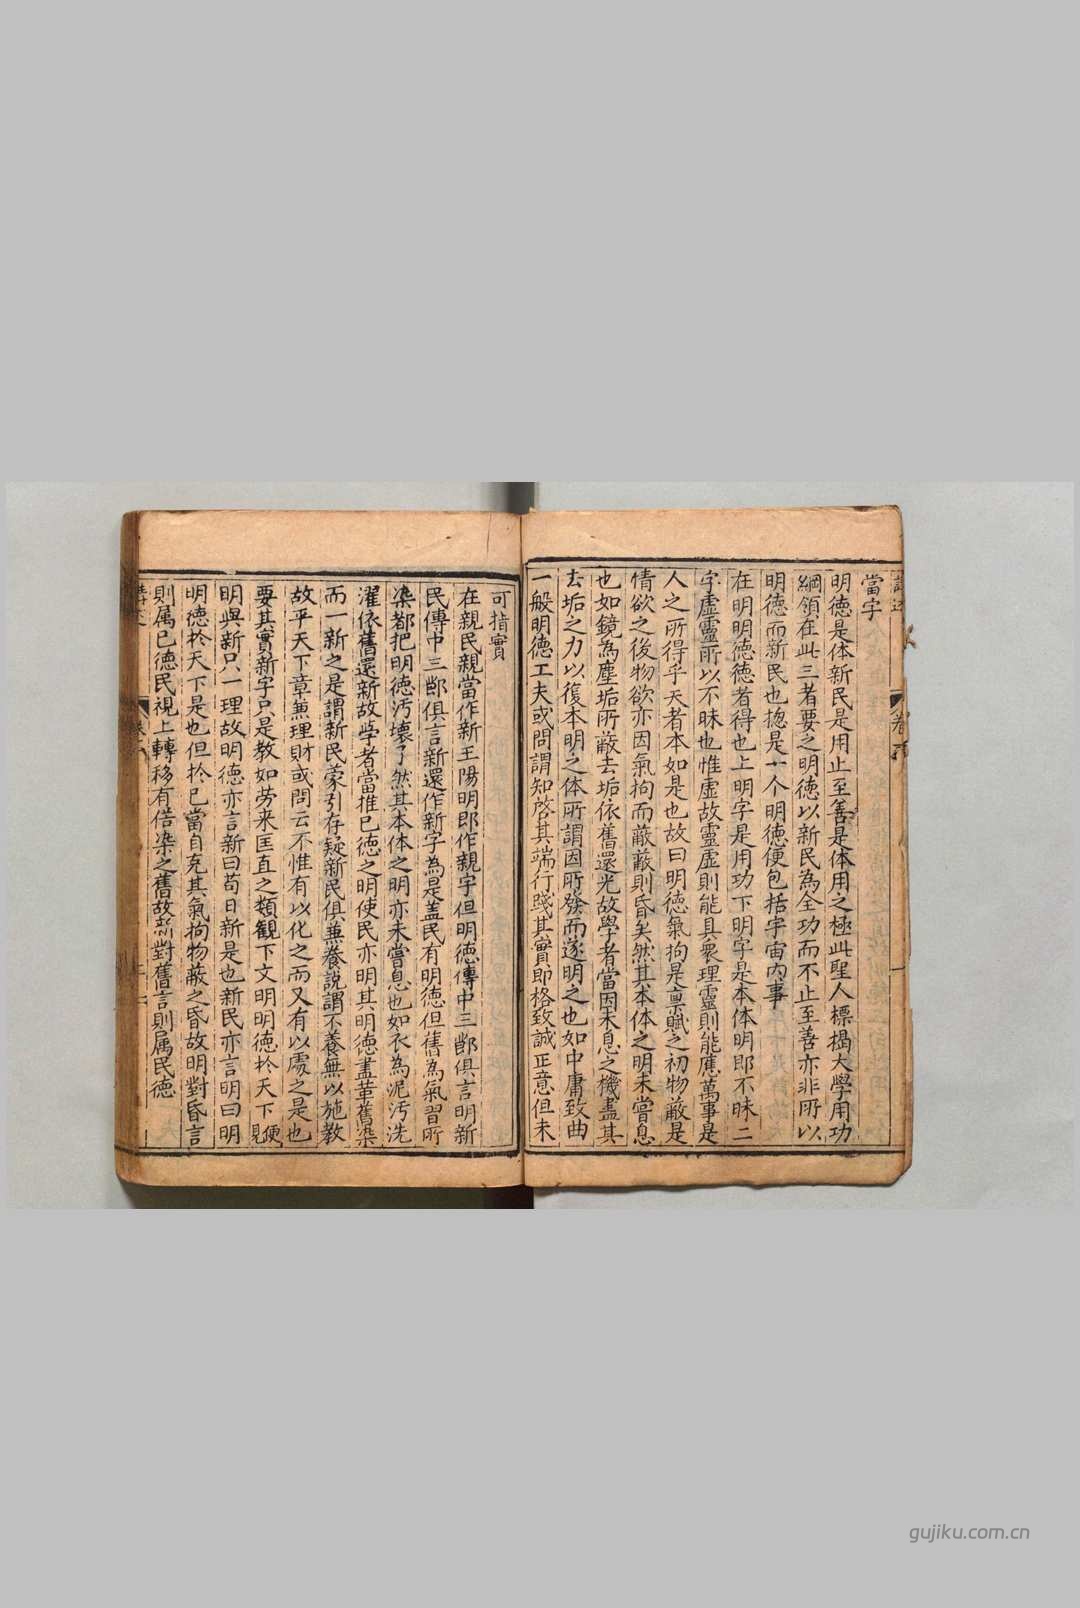 當字
明德是体新民是用止至善是体用之極此聖人標揭大學用功
綱領在此三者要之明德以新民為全功而不止至善亦非所以
明德而新民也揔是一个明德便包括宇宙內事
在明明德德者得也上明字是用功下明字是本体明即不昧二
字虛靈所以不昧也惟虛故靈虛則能具衆理靈則能應萬事是
人之所得乎天者本如是也故曰明德氣拘是禀賦之初物蔽是
情欲之後物欲亦因氣拘而蔽蔽則昏矣然其本体之明未嘗息
也如鏡為塵垢所蔽去垢依舊還光故學者當因未息之機盡其
去垢之力以復本明之体所謂因所發而遂明之也如中庸致曲
一般明德工夫或問謂知啓其端行踐其實即格致誠正意但未
可指實
在親民親當作新王陽明即作親字但明德傳中三卽俱言明新
民傳中三卽俱言新還作新字為是盖民有明德但舊為氣習所
染都把明德污壞了然其本体之明亦未嘗息也如衣為泥污洗
濯依舊還新故学者當推已德之明使民亦明其明德盡革舊染
而一新之是謂新民蒙引存疑新民俱兼養說謂不養無以施教
故平天下章兼理財或問云不惟有以化之而又有以處之是也
要其實新字只是教如劳来匡直之類観下文明明德於天下便見
明與新只一理故明德亦言新曰苟日新是也新民亦言明曰明
明德於天下是也但於已當自克其氣拘物蔽之昏故明對昏言
則属已德民視上轉移有倍染之舊故新對舊言則属民德
卷
gujiku.com.cn